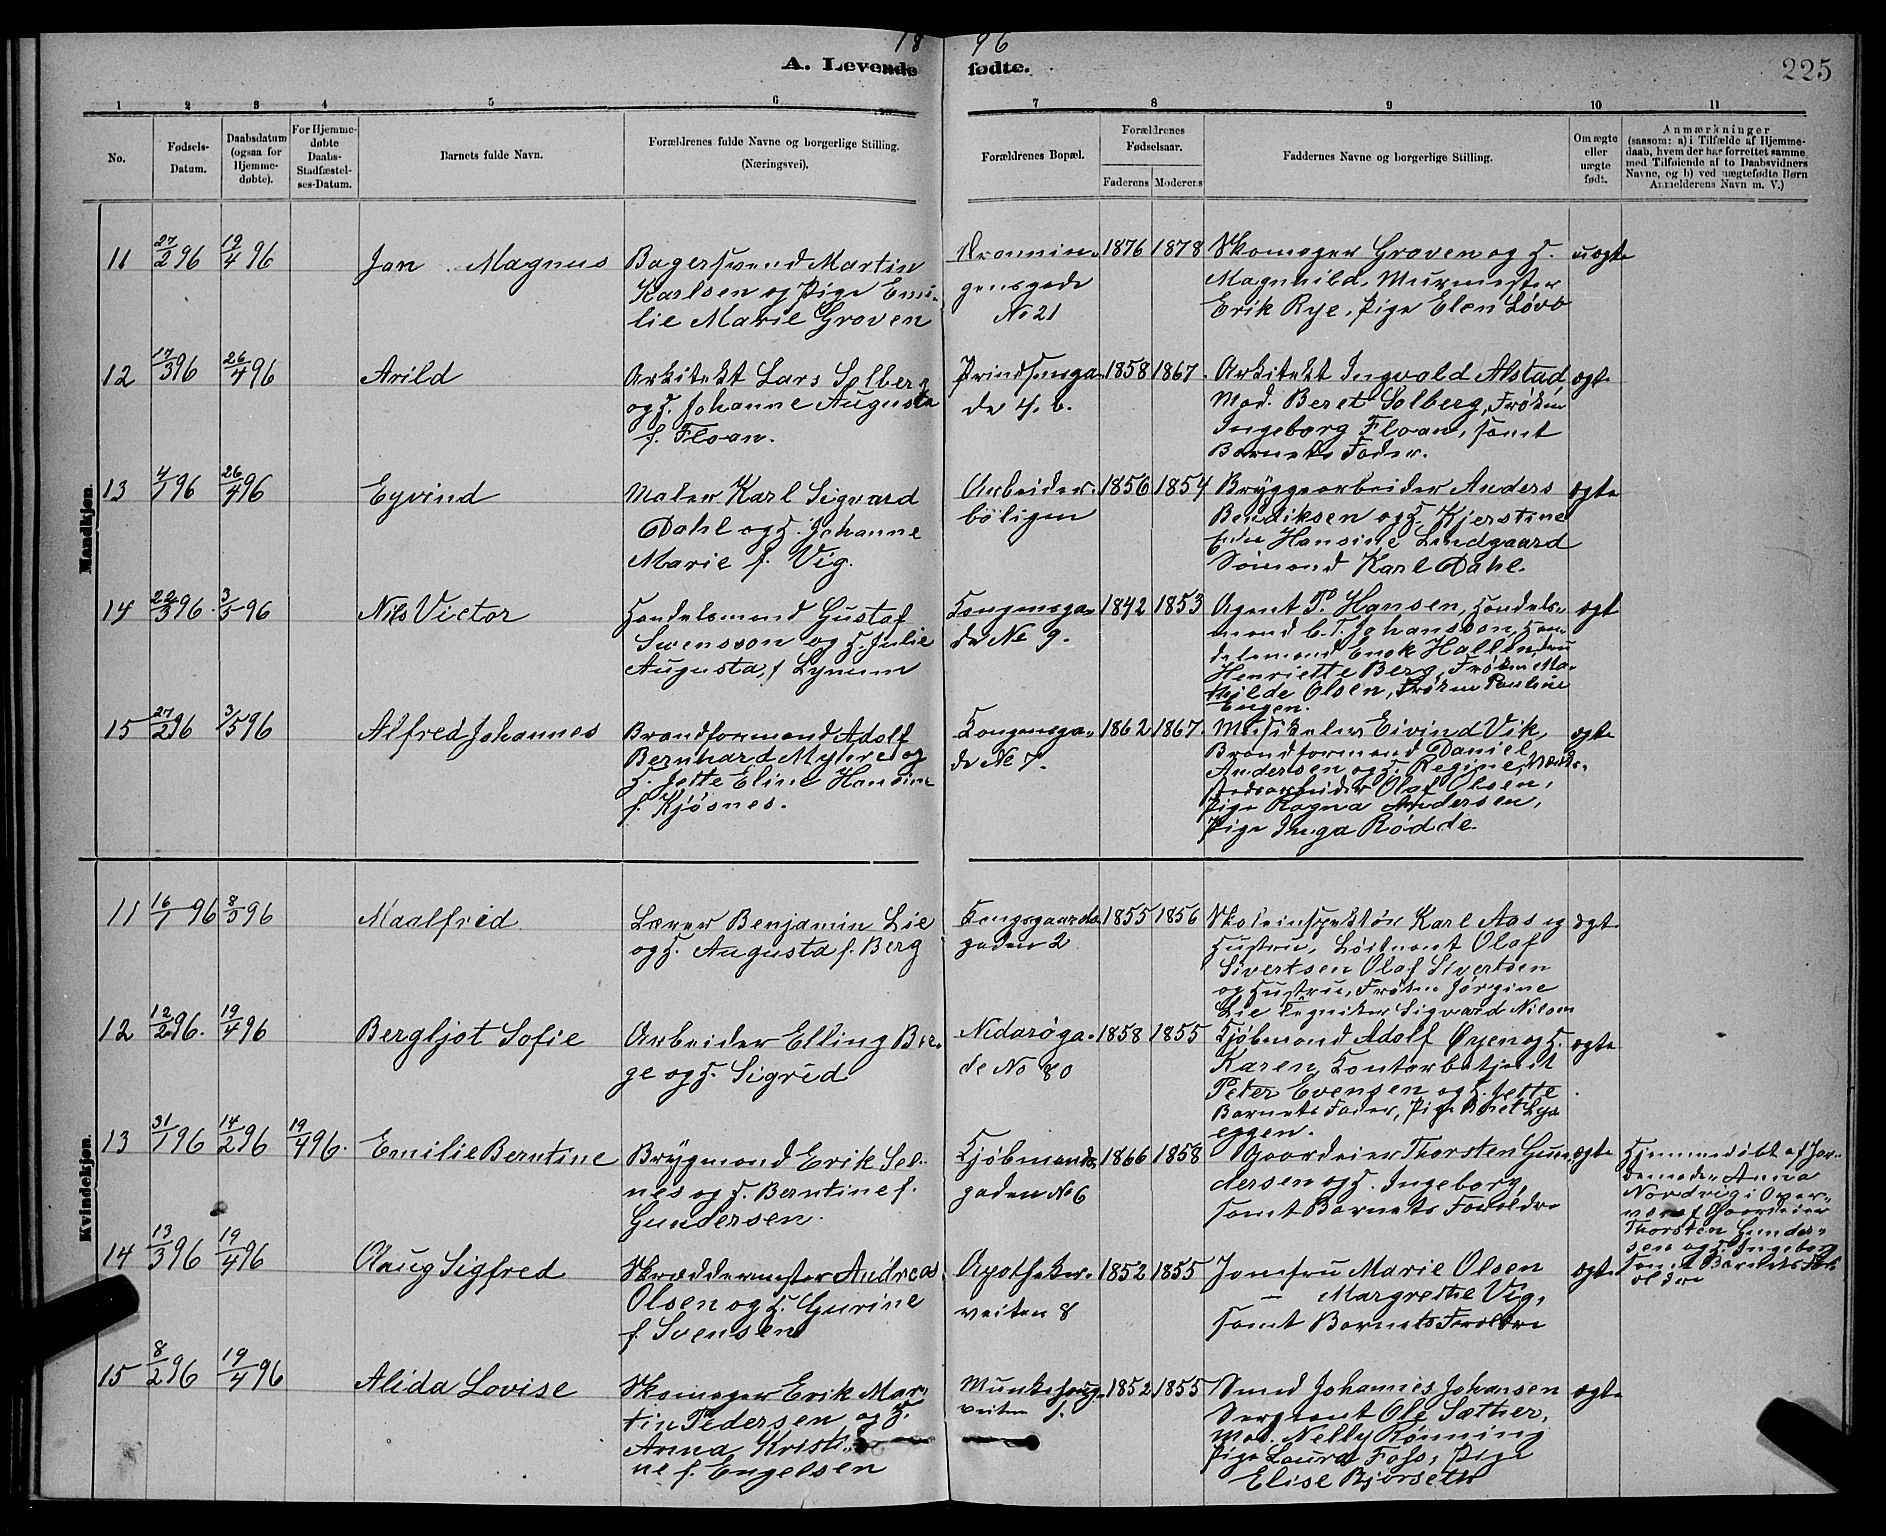 18 96
A. Levende fødte.
225
1 2 3 4 5 6 7 8 9 10 11
No.
Fødsels-
Datum.
Daabsdatum
(ogsaa for
Hjemme-
døbte).
For Hjemme-
døbte
Daabs-
Stadfæstel-
ses-Datum.
Barnets fulde Navn.
Forældrenes fulde Navne og borgerlige Stilling.
(Næringsvei).
Forældrenes Bopæl.
Forældrenes
Fødselsaar.
Faderens Moderens
Faddernes Navne og borgerlige Stilling.
Om ægte
eller
uægte
født.
Anmærkninger
(saasom: a) i Tilfælde af Hjemme-
daab, hvem der har forrettet samme,
med Tilføiende af to Daabsvidners
Navne, og b) ved uægtefødte Børn
Anmelderens Navn m. V.)
Mandkjøn.
11 27/2 96 19/4 96 Jan Magnus
Bagersvend Martin
Karlsen og Pige Emi-
lie Marie Groven
Dronnin-
gensgade
No 21
1876 1878
Skomager Groven og H.
Magnhild, Murmester
Erik Rye, Pige Elen Løvo
uægte
12 17/3 96 26/4 96 Arild
Arkitekt Lars Solberg
og H. Johanne Augusta
f. Floan.
Prindsensga-
de 4. b.
1858 1867.
Arkitekt Ingvald Alstad,
Mad. Beret Solberg, Frøken
Ingeborg Floan, samt
Barnets Fader.
ægte
13 4/1 96 26/4 96 Eyvind
Maler Karl Sigvard
Dahl og H. Johanne
Marie f. Vig.
Arbeider-
boligen
1856 1854
Bryggearbeider Anders
Bendiksen og H. Kjerstine
Hansine Lindgaard
Sømand Karl Dahl.
ægte
14 22/3 96. 3/5 96 Nils Victor
Handelsmand Gustaf
Svensson og H. Julie
Augusta, f Lynum
Kongensga-
de No 9.
1842 1853
Agent P. Hansen, Handels-
mand C. T. Johansson, Han-
delsmand Enok Hallin, Fru
Henriette Berg, Frøken Ma-
thilde Olsen, Frøken Pauline
Engen.
ægt
15 27/2 96 3/5 96 Alfred Johannes
Brandformand Adolf
Bernhard Myhre og
H. Jette Eline Hansine
f. Kjøsnes.
Kongensga-
de No 7.
1862 1867.
Musikelev Eivind Vik,
Brandformand Daniel
Andersen og H. Regine, Værk-
stedsarbeider Olaf Olsen,
Pige Ragna Andersen,
Pige Inga Rødde.
ægte
Kvindekjøn.
11 16/1 96 8/3 96 Maalfrid
Lærer Benjamin Lie
og H. Augusta f. Berg
Kongsgaards-
gaden 2
1855 1856
Skoleinspektør Karl Aas og
Hustru, Løitnant Olaf
Sivertsen Olaf Sivertsen
og Hustru, Frøken Jørgine
Lie Tegniker Sigvard Nilsen
ægte
12 12/2 96. 19/4 96 Bergljot Sofie
Arbeider Elling Bre-
ge og H. Sigrid
Nidarøga-
de No 80
1858 1855
Kjøbmand Adolf Øyen og H.
Karen, Kontorbetjent
Peter Evensen og H. Jette
Barnets Fader, Pige Beret Lys
eggen.
ægte
13 31/1 96 14/2 96 19/4 96. Emilie Berntine
Brygmand Erik Sel-
nes og H. Berntine f.
Gundersen.
Kjøbmands
gaden No 6
1866 1858
Gaardeier Thorsten Gun-
dersen og H. Ingeborg,
samt Barnets Forældre
ægte
Hjemmedøbt af Jor-
demoder Anna
Nordvig i Over-
vær af Gaardeier
Thorsten Gunder-
sen og H. Ingeborg
samt Barnets For-
ældre
14 13/3 96 19/4 96 Aaug Sigfred
Skræddermester Andreas
Olsen og H. Gurine
f. Svensen
Apotheker-
veiten 8
1852 1855
Jomfru Marie Olsen
— Margrethe Vig,
samt Barnets Forældre
ægte
15 8/2 96 19/4 96 Alida Lovise
Skomager Erik Mar-
tin Pedersen og H.
Anna Kristi-
ne f. Engelsen
Munkehaug-
veiten 1.
1852 1855
Smed Johannes Johansen
Sergeant Ole Sæther,
Mad. Nelly Rønning
Pige Laura Foss, Pige
Elise Bjørseth
ægte